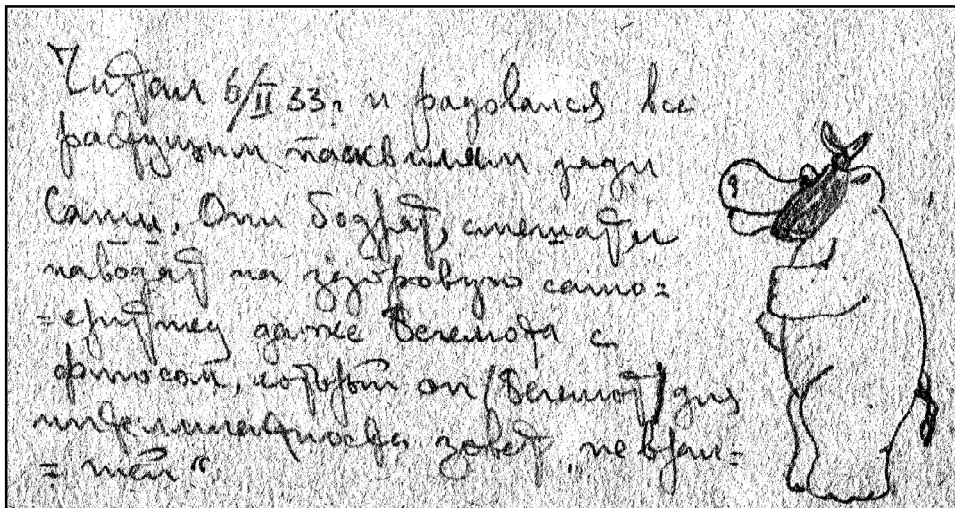 Читал 6/II 33г. и радовался все
пасквилям дяди
Саши. Они бодрят, смешат и
наводят на здоровую само=
=критику даже бегемота с
флюсом, который он (бегемот) для
интеллигентности зовет „не врал=